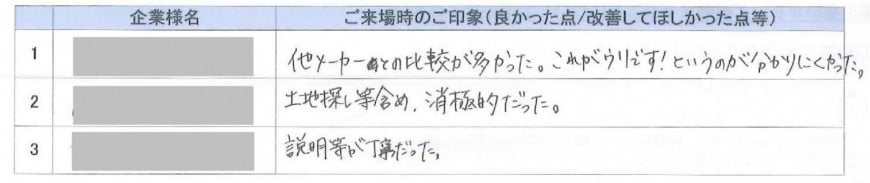 企業様名 ご来場時のご印象(良かった点/改善してほしかった点等)
1 他メーカーとの比較が多かった。これがウリです!というのが分かりにくかった。
2 土地探し等含め、消極的だった。
3 説明等が丁寧だった。